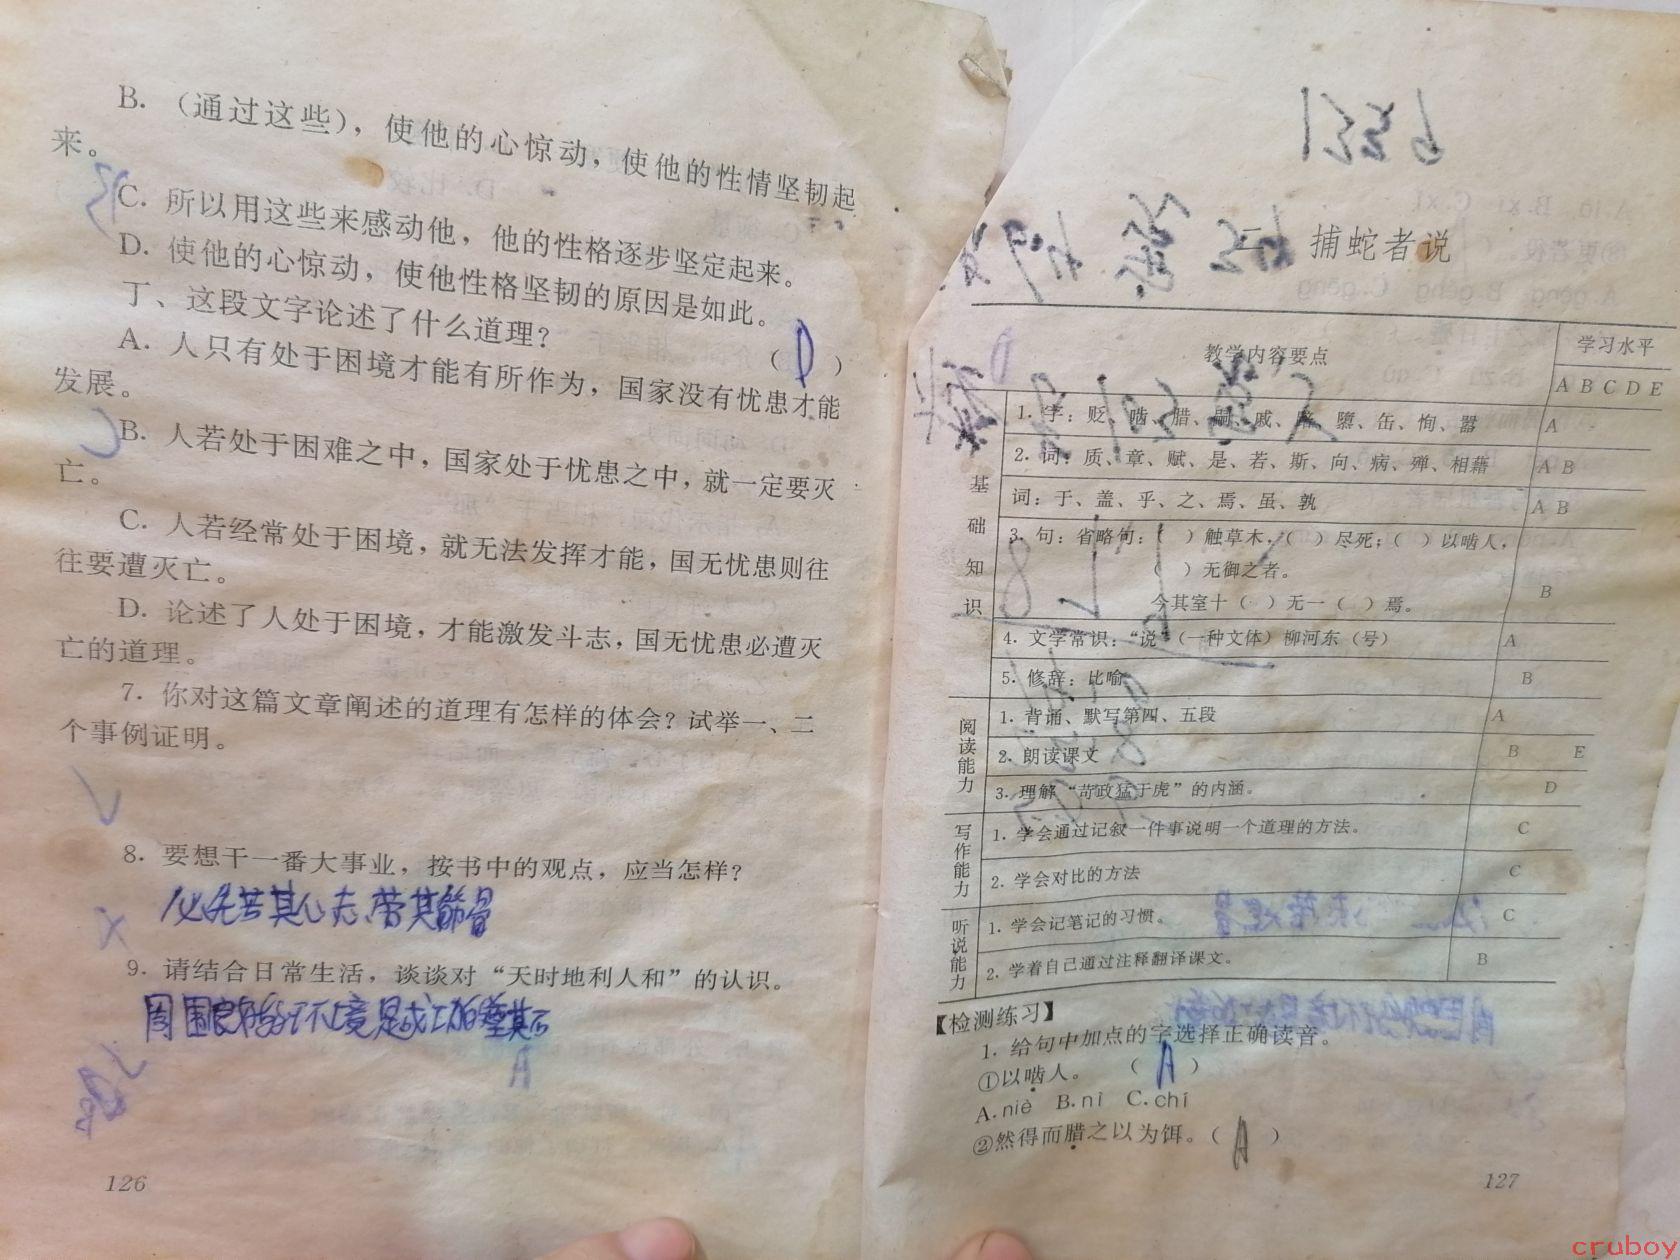 B. （通过这些），使他的心惊动，使他的性情坚韧起
来。
C. 所以用这些来感动他，他的性格逐步坚定起来。
D. 使他的心惊动，使他性格坚韧的原因是如此。
丁、这段文字论述了什么道理？
（D）
A. 人只有处于困境才能有所作为，国家没有忧患才能
发展。
B. 人若处于困难之中，国家处于忧患之中，就一定要灭
亡。
C. 人若经常处于困境，就无法发挥才能，国无忧患则往
往要遭灭亡。
D. 论述了人处于困境，才能激发斗志，国无忧患必遭灭
亡的道理。
7. 你对这篇文章阐述的道理有怎样的体会？试举一、二
个事例证明。
8. 要想干一番大事业，按书中的观点，应当怎样？
必先苦其心志，劳其筋骨
9. 请结合日常生活，谈谈对“天时地利人和”的认识。
126
捕蛇者说
教学内容要点
学习水平
A B C D E
基础知识
1. 字：贬、啮、腊、嗣、戚、隳、缶、恂、嚣
A
2. 词：质、章、赋、是、若、斯、向、病、殚、相藉
A B
词：于、盖、乎、之、焉、虽、孰
A B
3. 句：省略句：（ ）触草木，（ ）尽死；（ ）以啮人，
（ ）无御之者。
今其室十（ ）无一（ ）焉。
B
4. 文学常识：“说”（一种文体）柳河东（号）
A
5. 修辞：比喻
B
阅读能力
1. 背诵、默写第四、五段
A
2. 朗读课文
B E
3. 理解“苛政猛于虎”的内涵。
D
写作能力
1. 学会通过记叙一件事说明一个道理的方法。
C
2. 学会对比的方法
C
听说能力
1. 学会记笔记的习惯。
C
2. 学着自己通过注释翻译课文。
B
【检测练习】
1. 给句中加点的字选择正确读音。
①以啮人。 （A）
A. niè B. nì C. chí
②然得而腊之以为饵。（A）
127
cruboy